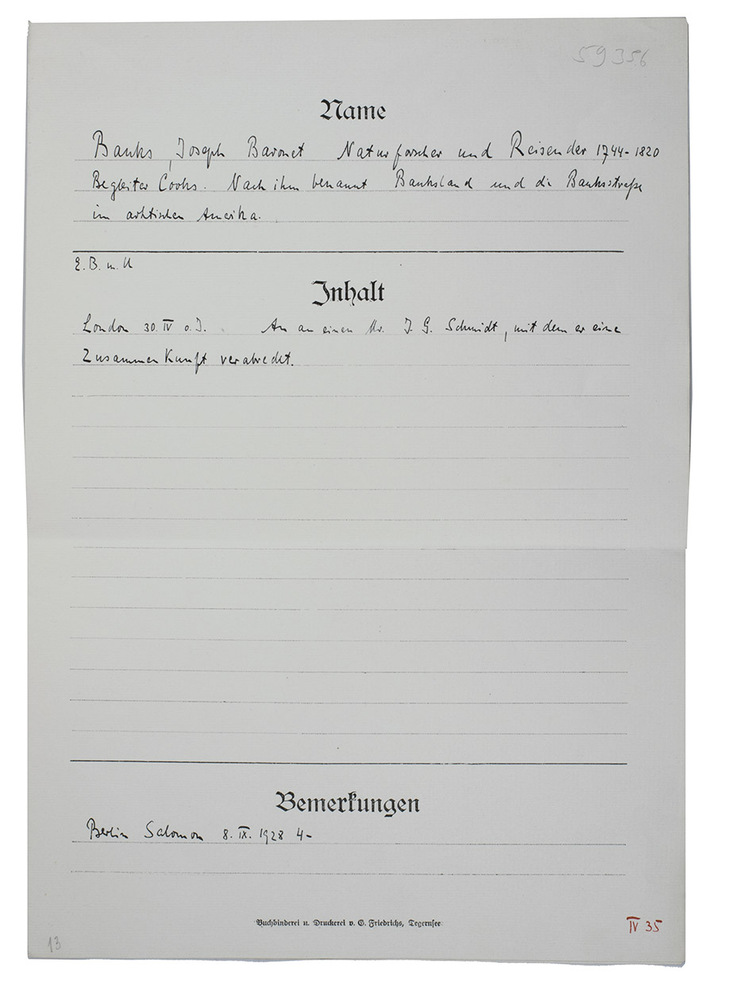 59356
Name
Banks, Joseph Baronet Naturforscher und Reisender 1744-1820
Begleiter Cooks. Nach ihm benannt Banksland und die Banksstraße
im arktischen Amerika.
E. B. m. U
Inhalt
London 30. IV o. J. An an einen Mr. J. G. Schmidt, mit dem er eine
Zusammenkunft verabredet.
Bemerkungen
Berlin Salomon 8. IX. 1928 4-
Buchbinderei u. Druckerei v. G. Friedrichs, Tegernsee
13
IV 35